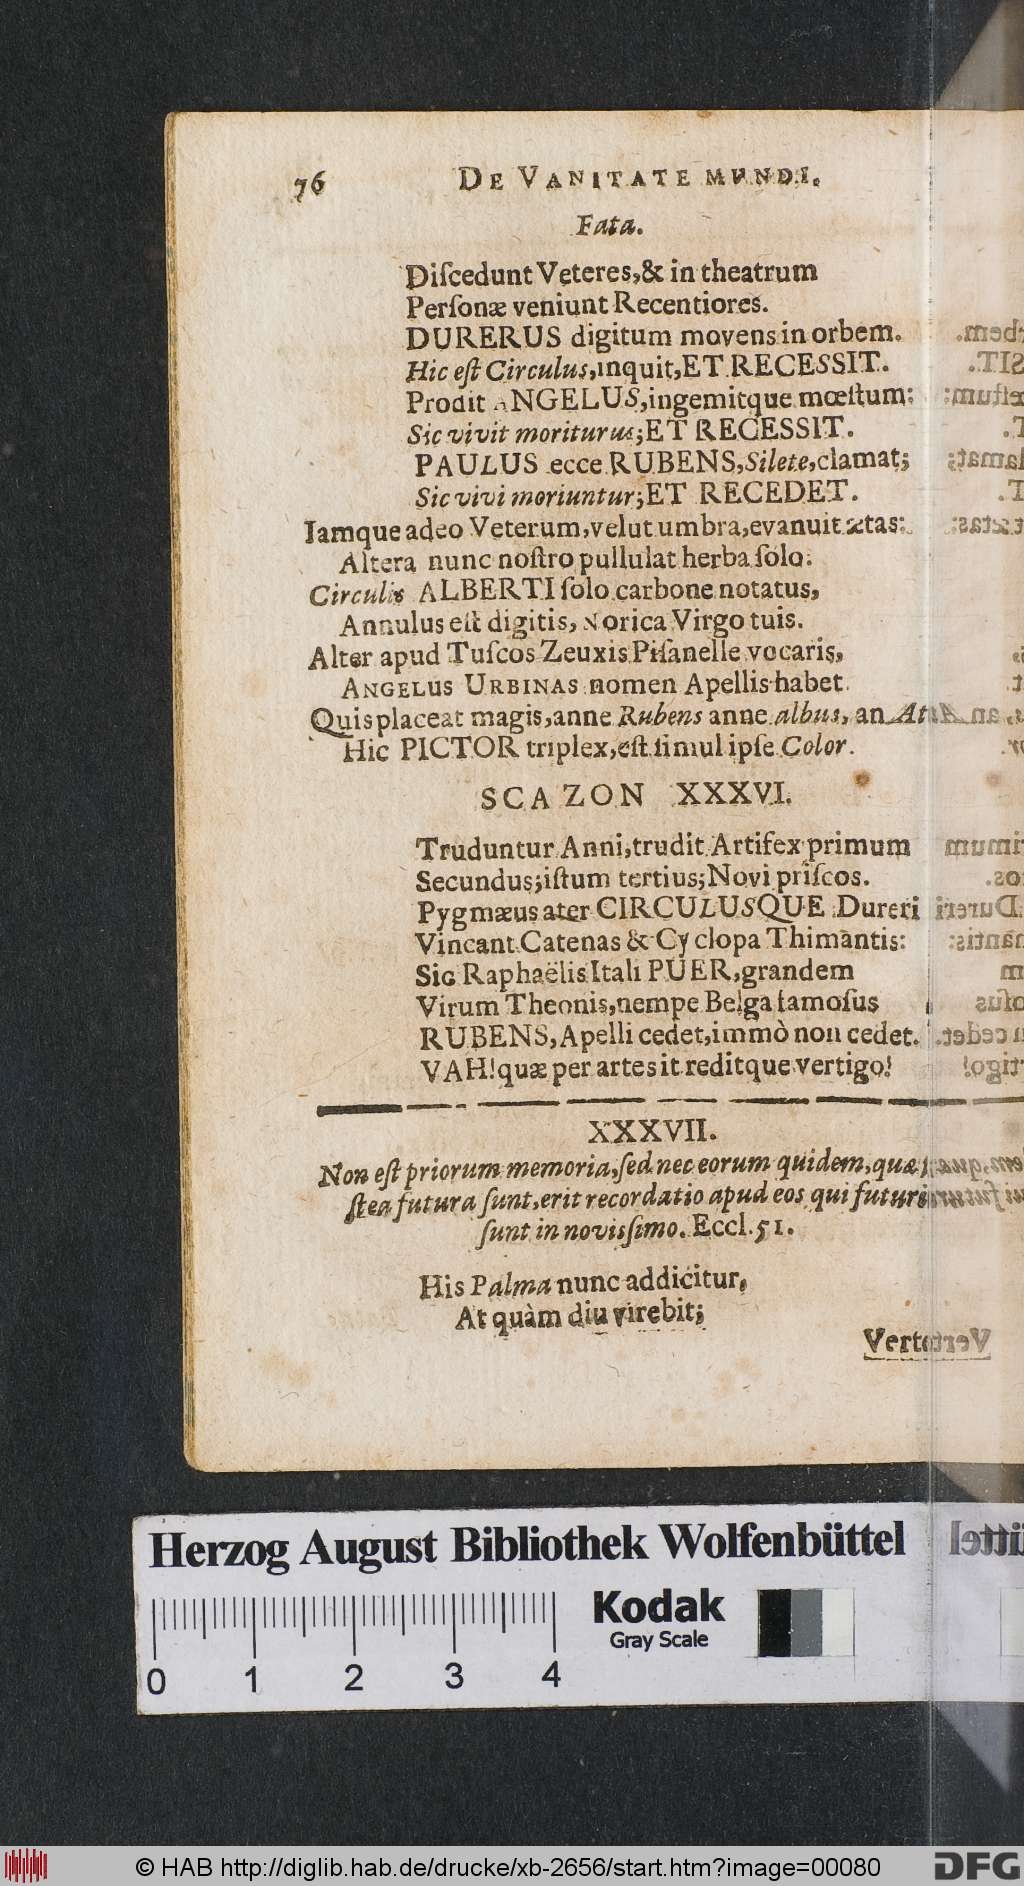 76 DE VANITATE MUNDI.
Fata.
Diſcedunt Veteres,& in theatrum
Perſonæ veniunt Recentiores.
DURERUS digitum movens in orbem.
Hic eſt Circulus,inquit,ET RECESSIT.
Prodit ANGELUS,ingemitque mœſtum:
Sic vivit moriturus;ET RECESSIT.
PAULUS ecce RUBENS,Silete,clamat;
Sic vivi moriuntur;ET RECEDET.
Iamque adeo Veterum,velut umbra,evanuit ætas:
Altera nunc noſtro pullulat herba ſolo.
Circulis ALBERTI ſolo carbone notatus,
Annulus eſt digitis, Norica Virgo tuis.
Alter apud Tuſcos Zeuxis Piſanelle vocaris,
ANGELUS URBINAS nomen Apellis habet.
Quis placeat magis,anne Rubens anne albus, an
Hic PICTOR triplex,eſt ſimul ipſe Color.
SCAZON XXXVI.
Truduntur Anni,trudit Artifex primum
Secundus;iſtum tertius;Novi priſcos.
Pygmæus ater CIRCULUSQUE Dureri
Vincant Catenas & Cyclopa Thimantis:
Sic Raphaëlis Itali PUER,grandem
Virum Theonis,nempe Belga famoſus
RUBENS,Apelli cedet,immò non cedet.
VAH!quæ per artes it reditque vertigo!
XXXVII.
Non eſt priorum memoria,ſed nec eorum quidem,quæ
ſtea futura ſunt,erit recordatio apud eos qui futuri
ſunt in noviſſimo. Eccl.51.
His Palma nunc addicitur,
At quàm diu virebit;
Herzog August Bibliothek Wolfenbüttel
Kodak
Gray Scale
0 1 2 3 4
© HAB http://diglib.hab.de/drucke/xb-2656/start.htm?image=00080
DFG